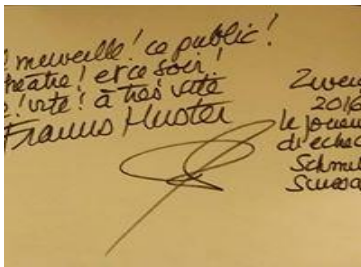 merveille! ce public!
théâtre! et ce soir!
vite! à très vite
Francis Huster
Zweig
2016
le joueur
d'échec